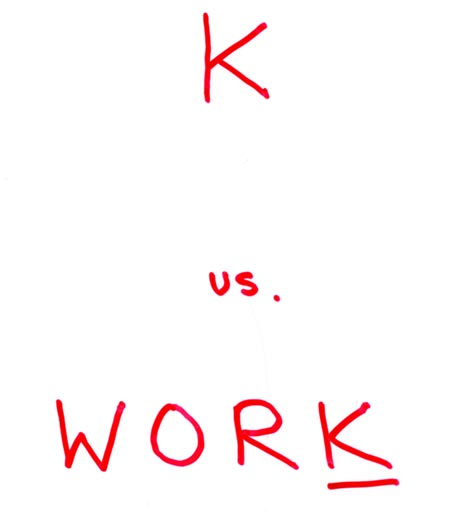 K
vs.
WORK